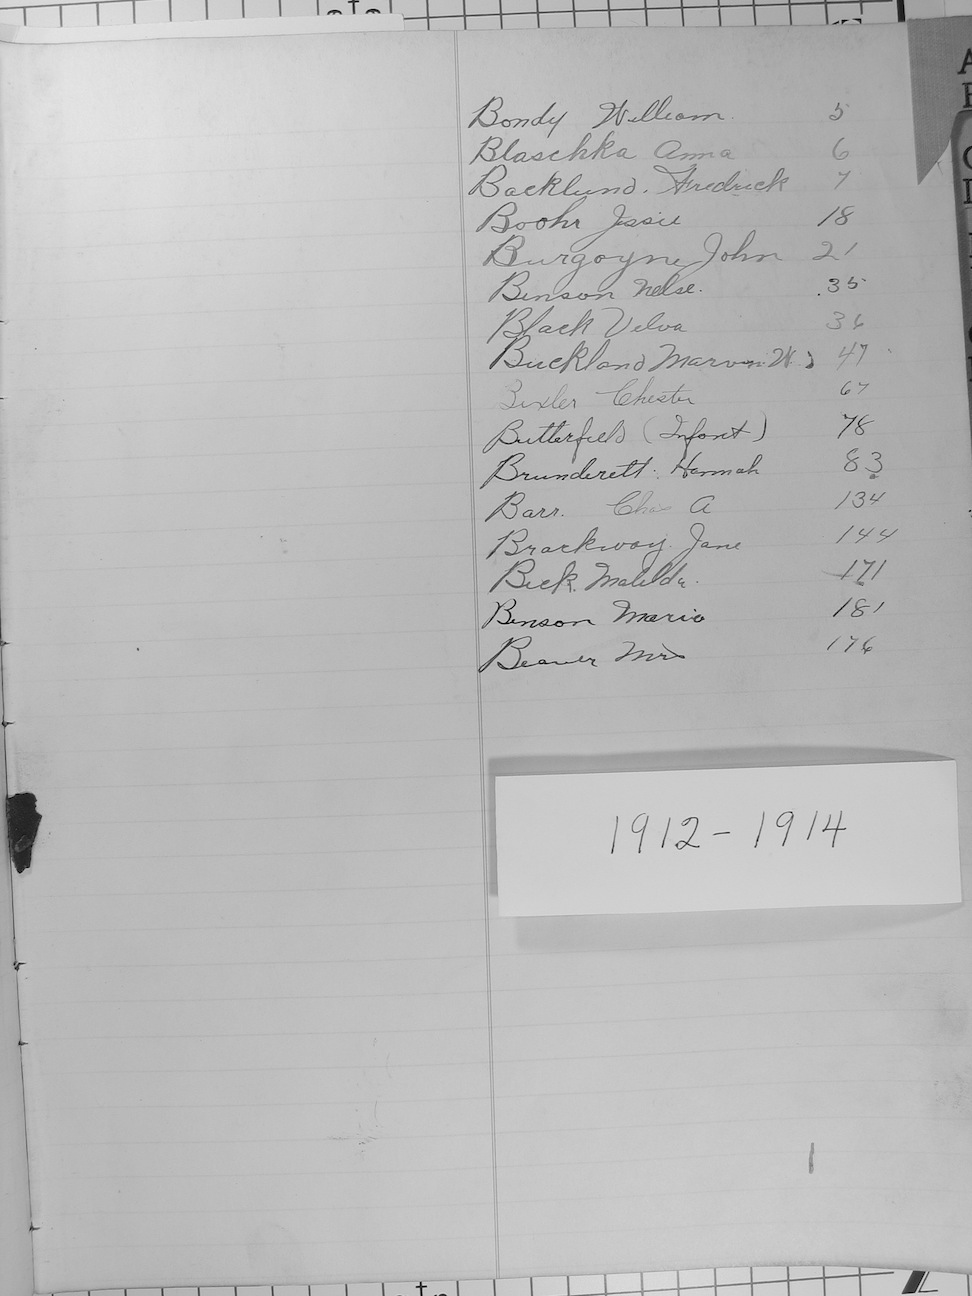 Bondy William. 5
Blaschka Anna 6
Backlund. Fredrick 7
Boohr Jssie 18
Burgoyne John 21
Benson Nelse. 35
Black Velva 36
Buckland Marvin W. 47
Bixler Chester 67
Butterfield (Infant) 78
Brunderett. Hannah 83
Barr. Chas A 134
Brockway Jane 144
Beck. Matilda. 171
Benson Maria 181
Beaver Mrs 176
1912-1914
1